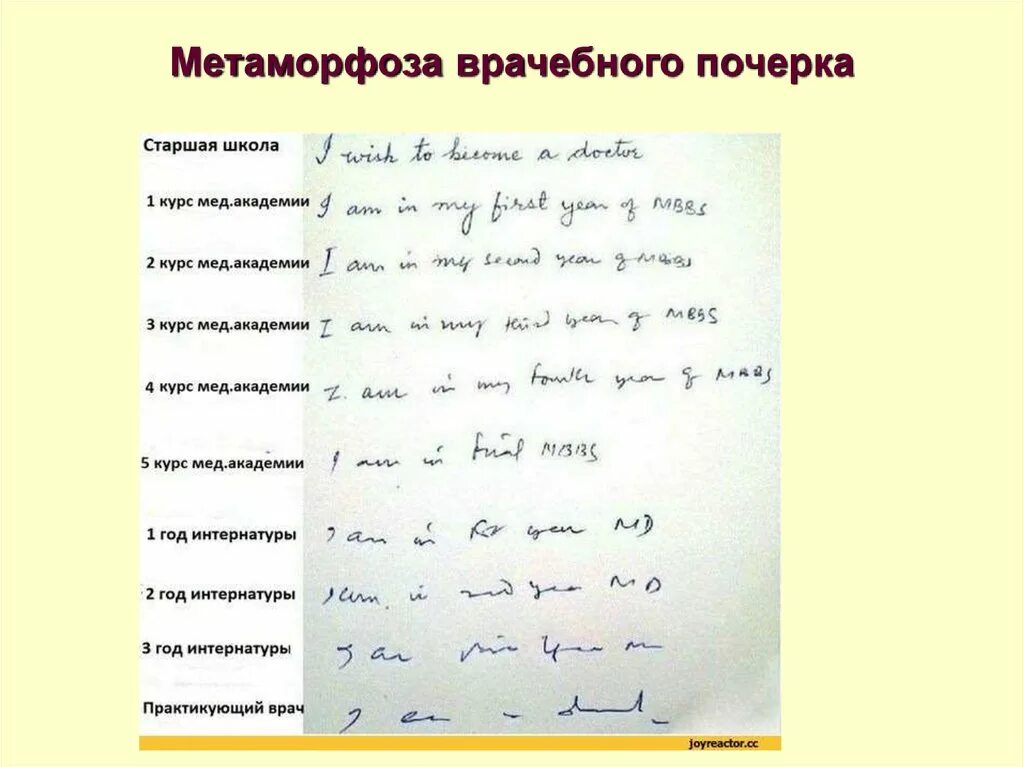 Метаморфоза врачебного почерка
Старшая школа I wish to become a doctor
1 курс мед.академии I am in my first year of MBBS
2 курс мед.академии I am in my second year of MBBS
3 курс мед.академии I am in my third year of MBBS
4 курс мед.академии I am in my fourth year of MBBS
5 курс мед.академии I am in final MBBS
1 год интернатуры I am in year MD
2 год интернатуры I am in 2nd year MD
3 год интернатуры I am
Практикующий врач I am
joyreactor.cc